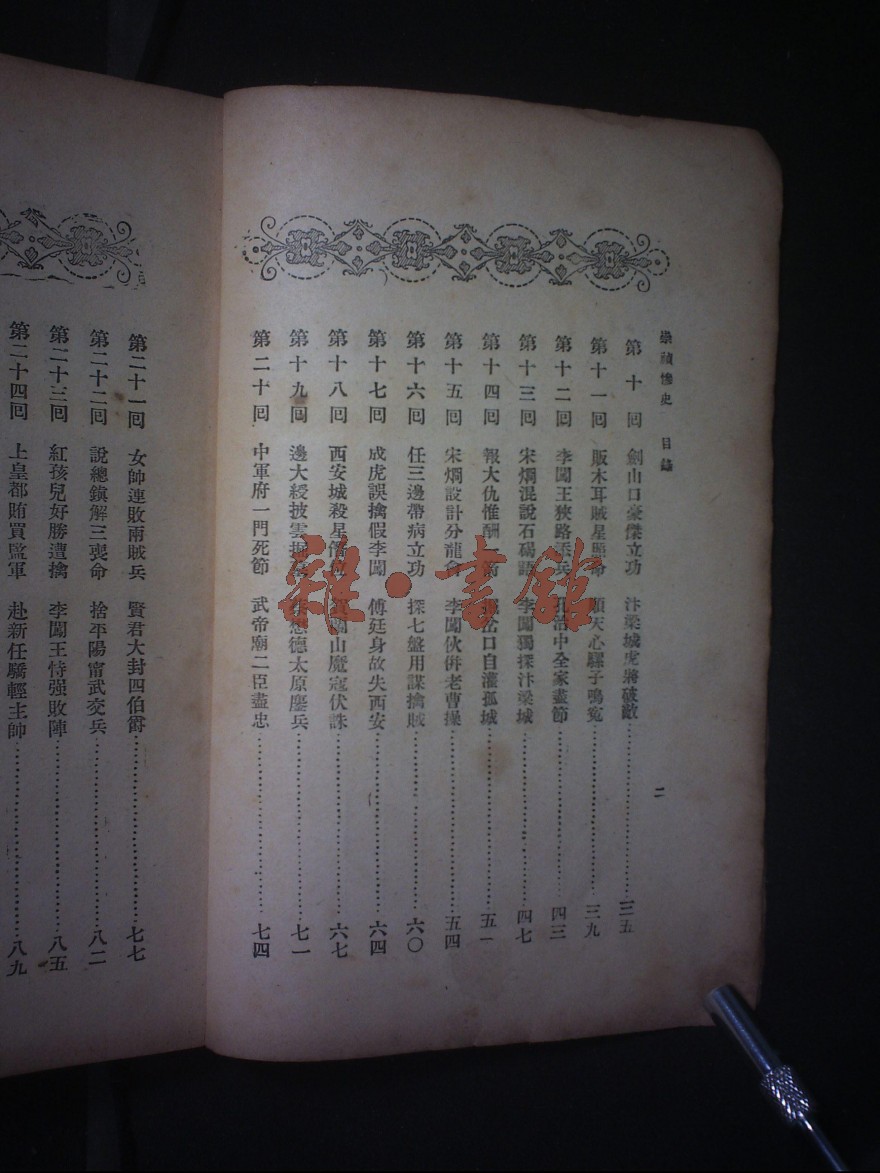 崇禎慘史 目錄
二
第十回 劍山口豪傑立功 汴梁城虎將破敵 三五
第十一回 販木耳賊星 命 天心騾子鳴冤 三九
第十二回 李闖王狹路添兵 孔 中全家盡節 四三
第十三回 宋烱混說石碣語 李闖獨探汴梁城 四七
第十四回 報大仇惟酬一箭 岔口自灌孤城 五一
第十五回 宋烱設計分龍會 李闖伙併老曹操 五四
第十六回 任三邊帶病立功 探七盤用謀擒賊 六〇
第十七回 成虎誤擒假李闖 傅廷身故失西安 六四
第十八回 西安城殺星僭位 蘭山魔寇伏誅 六七
第十九回 邊大綬披雲掘 想德太原鏖兵 七一
第二十回 中軍府一門死節 武帝廟二臣盡忠 七四
第二十一回 女帥連敗兩賊兵 賢君大封四伯爵 七七
第二十二回 說總鎮解三喪命 捨平陽甯武交兵 八二
第二十三回 紅孩兒好勝遭擒 李闖王恃强敗陣 八五
第二十四回 上皇都賄買監軍 赴新任驕輕主帥 八九
雜·書館